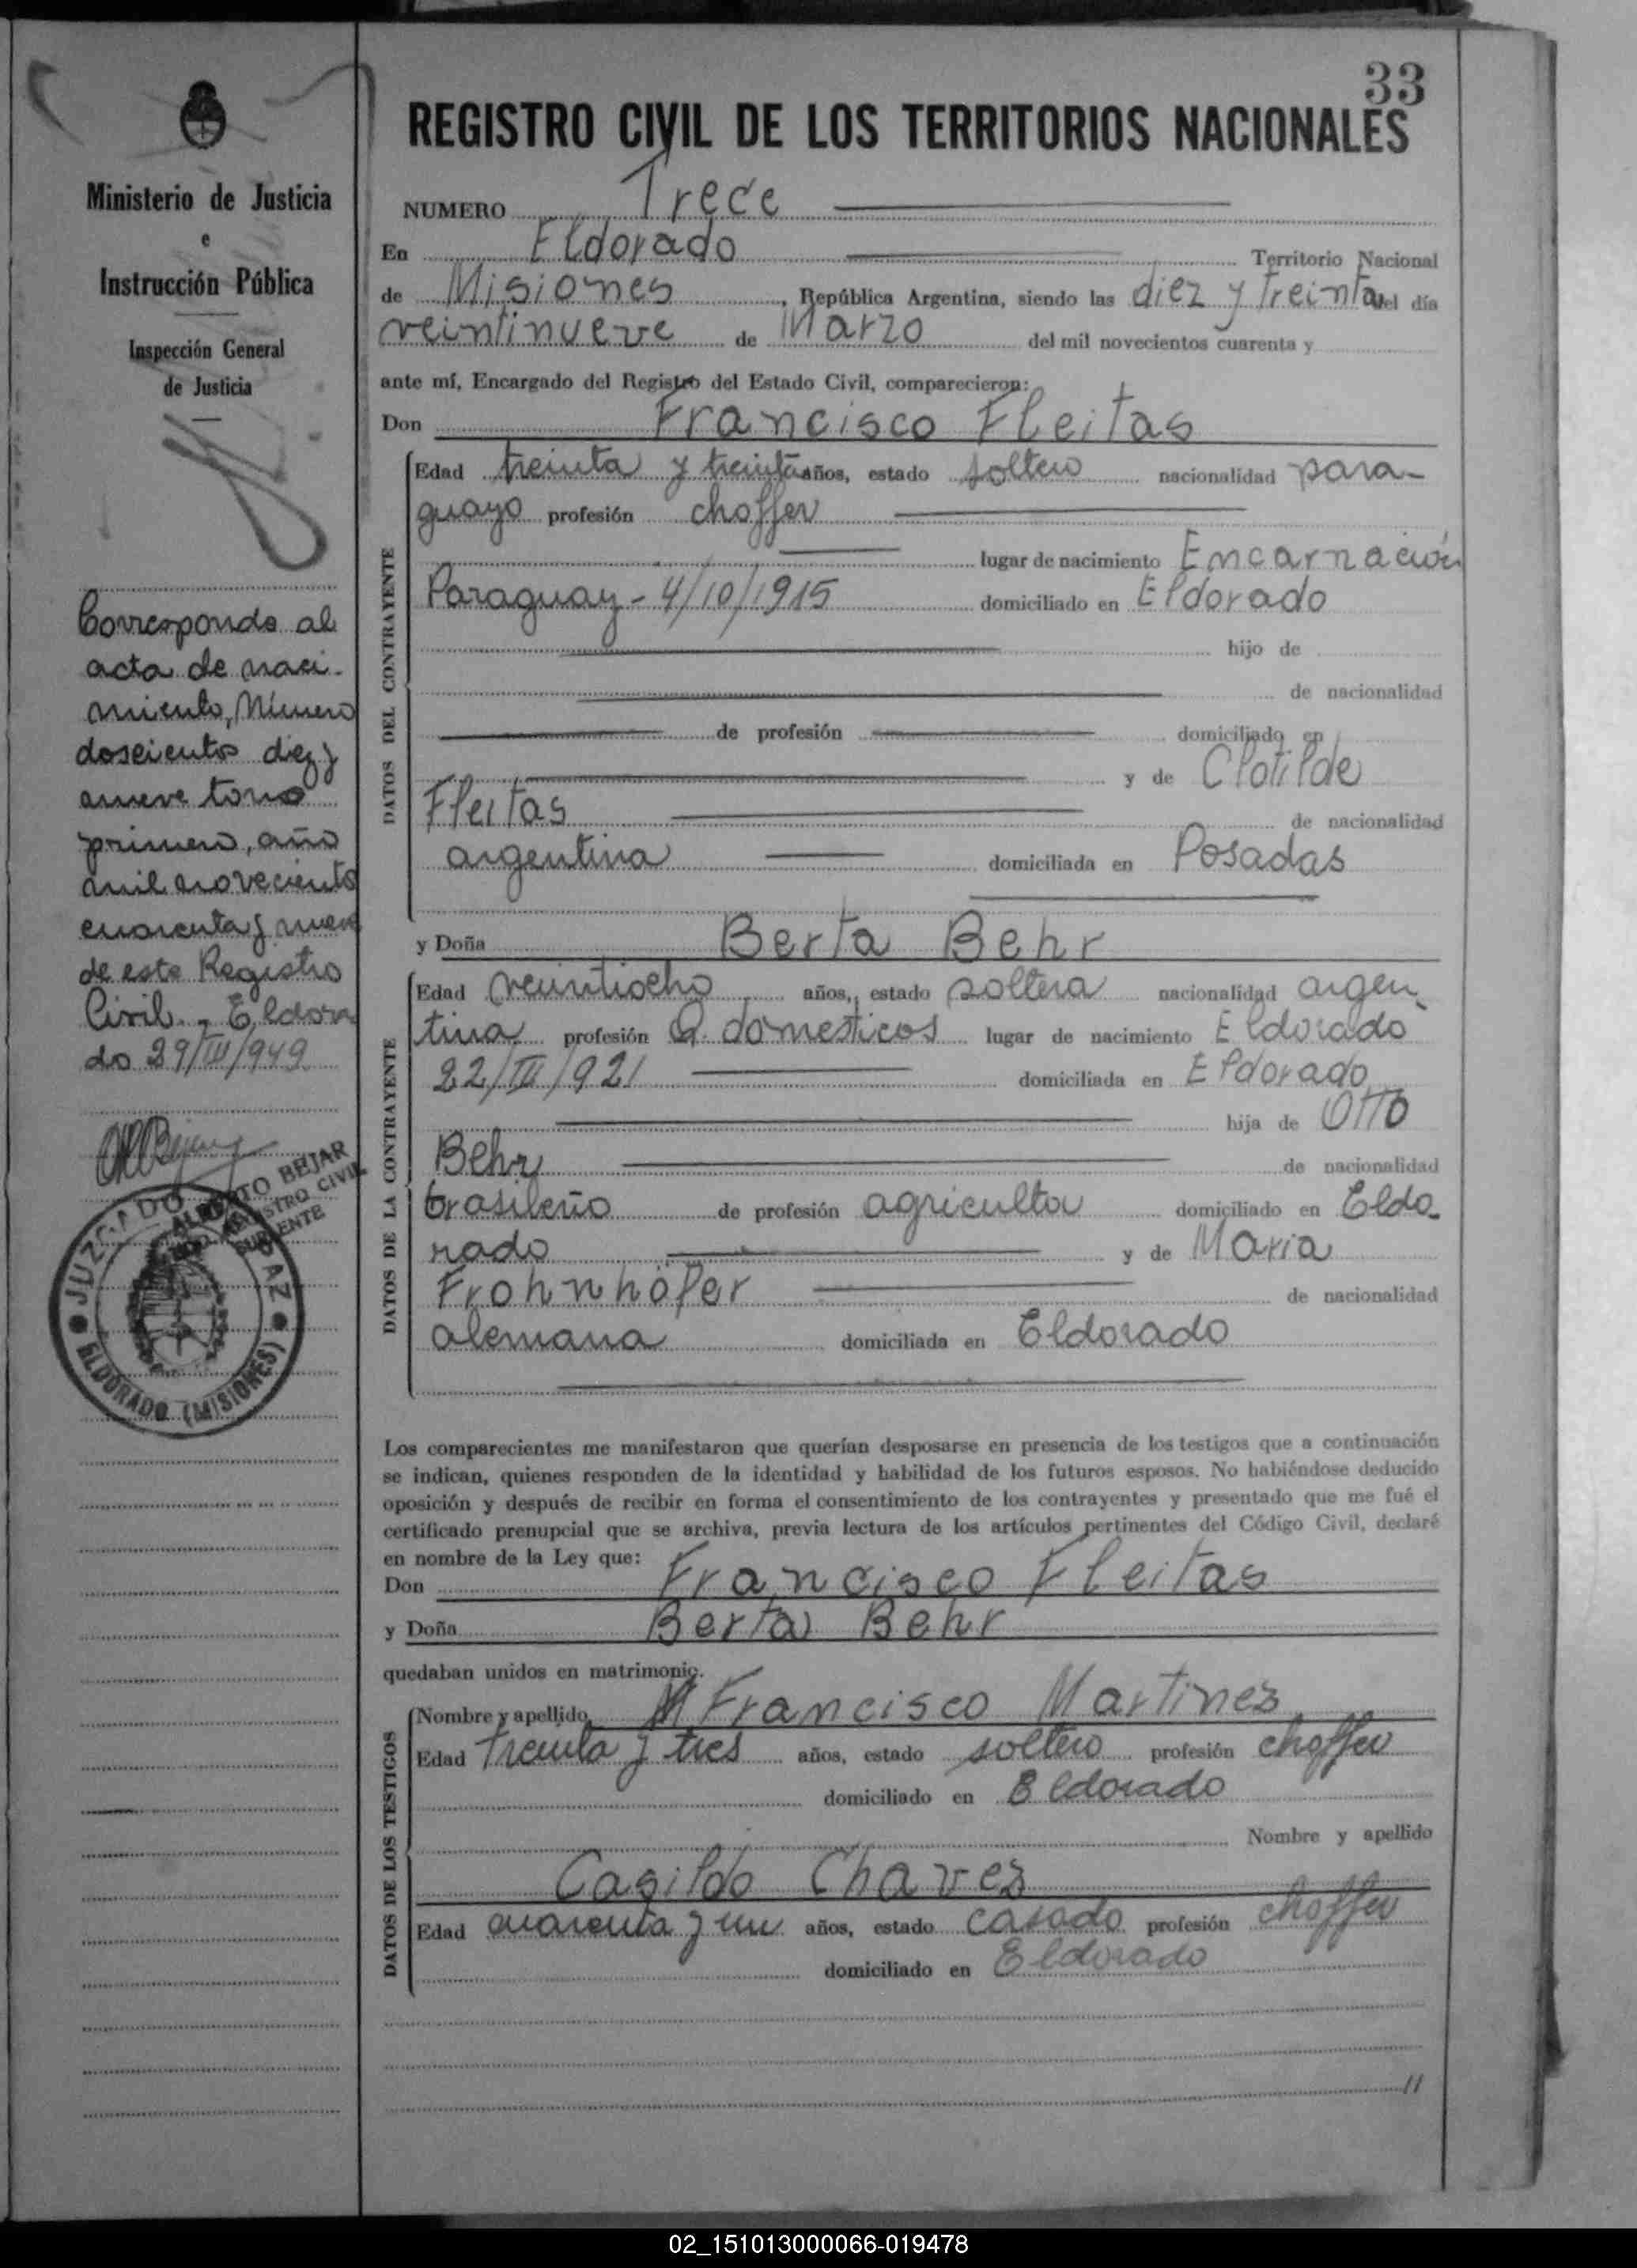 33
REGISTRO CIVIL DE LOS TERRITORIOS NACIONALES
Ministerio de Justicia
e
Instrucción Pública
Inspección General
de Justicia
Corresponde al
acta de naci-
miento, Número
doscientos diez y
nueve tomo
primero, año
mil novecientos
cuarenta y nueve
de este Registro
Civil. - Eldora
do 29/III/949
ALBERTO BEJAR
REGISTRO CIVIL
SUPLENTE
JUZGADO DE PAZ
ELDORADO (MISIONES)
NUMERO Trece
En Eldorado Territorio Nacional
de Misiones, República Argentina, siendo las diez y treinta del día
veintinueve de Marzo del mil novecientos cuarenta y
ante mí, Encargado del Registro del Estado Civil, comparecieron:
Don Francisco Fleitas
DATOS DEL CONTRAYENTE
Edad treinta y treinta años, estado soltero nacionalidad para-
guayo profesión choffer
lugar de nacimiento Encarnación
Paraguay - 4/10/1915 domiciliado en Eldorado
hijo de
de nacionalidad
de profesión domiciliado en
y de Clotilde
Fleitas de nacionalidad
argentina domiciliada en Posadas
y Doña Berta Behr
DATOS DE LA CONTRAYENTE
Edad veintiocho años, estado soltera nacionalidad argen-
tina profesión Q. domesticos lugar de nacimiento Eldorado
22/III/921 domiciliada en Eldorado
hija de Otto
Behr de nacionalidad
brasileño de profesión agricultor domiciliado en Eldo-
rado y de Maria
Frohnhöfer de nacionalidad
alemana domiciliada en Eldorado
Los comparecientes me manifestaron que querían desposarse en presencia de los testigos que a continuación
se indican, quienes responden de la identidad y habilidad de los futuros esposos. No habiéndose deducido
oposición y después de recibir en forma el consentimiento de los contrayentes y presentado que me fué el
certificado prenupcial que se archiva, previa lectura de los artículos pertinentes del Código Civil, declaré
en nombre de la Ley que:
Don Francisco Fleitas
y Doña Berta Behr
quedaban unidos en matrimonio.
DATOS DE LOS TESTIGOS
Nombre y apellido Francisco Martinez
Edad treinta y tres años, estado soltero profesión choffer
domiciliado en Eldorado
Nombre y apellido
Casildo Chavez
Edad cuarenta y un años, estado casado profesión choffer
domiciliado en Eldorado
//
02_151013000066-019478